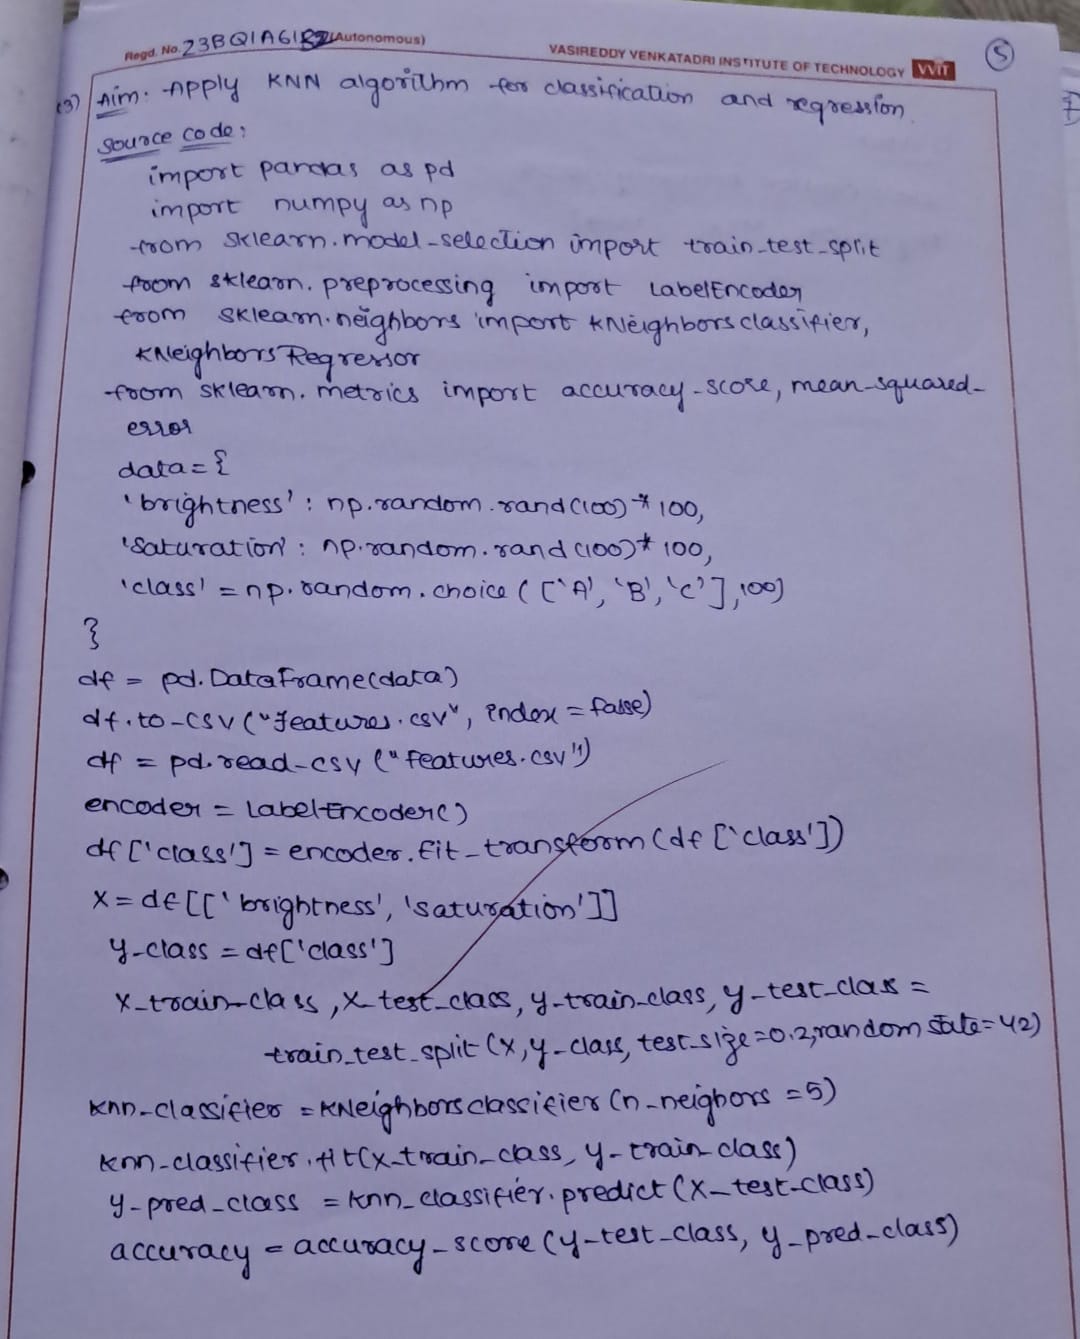 Regd. No. 23BQ1A61 (Autonomous)
VASIREDDY VENKATADRI INSTITUTE OF TECHNOLOGY VVIT
5
(3) Aim: Apply KNN algorithm for classification and regression.
Source code:
import pandas as pd
import numpy as np
from sklearn.model_selection import train_test_split
from sklearn.preprocessing import LabelEncoder
from sklearn.neighbors import KNeighborsclassifier,
KNeighborsRegressor
from sklearn.metrics import accuracy_score, mean_squared_
error
data={
'brightness': np.random.rand(100)*100,
'Saturation': np.random.rand(100)*100,
'class' = np.random.choice(['A', 'B', 'C'],100)
}
df = pd.DataFrame(data)
df.to_csv("features.csv", index=false)
df = pd.read_csv("features.csv")
encoder = LabelEncoder()
df['class'] = encoder.fit_transform(df['class'])
X=df[['brightness', 'saturation']]
y_class = df['class']
X_train_class, X_test_class, y_train_class, y_test_class =
train_test_split(X,y_class, test_size=0.2,random state=42)
knn_classifier = KNeighborsclassifier(n_neighbors=5)
knn_classifier.fit(X_train_class, y_train_class)
y_pred_class = knn_classifier.predict(X_test_class)
accuracy = accuracy_score(y_test_class, y_pred_class)